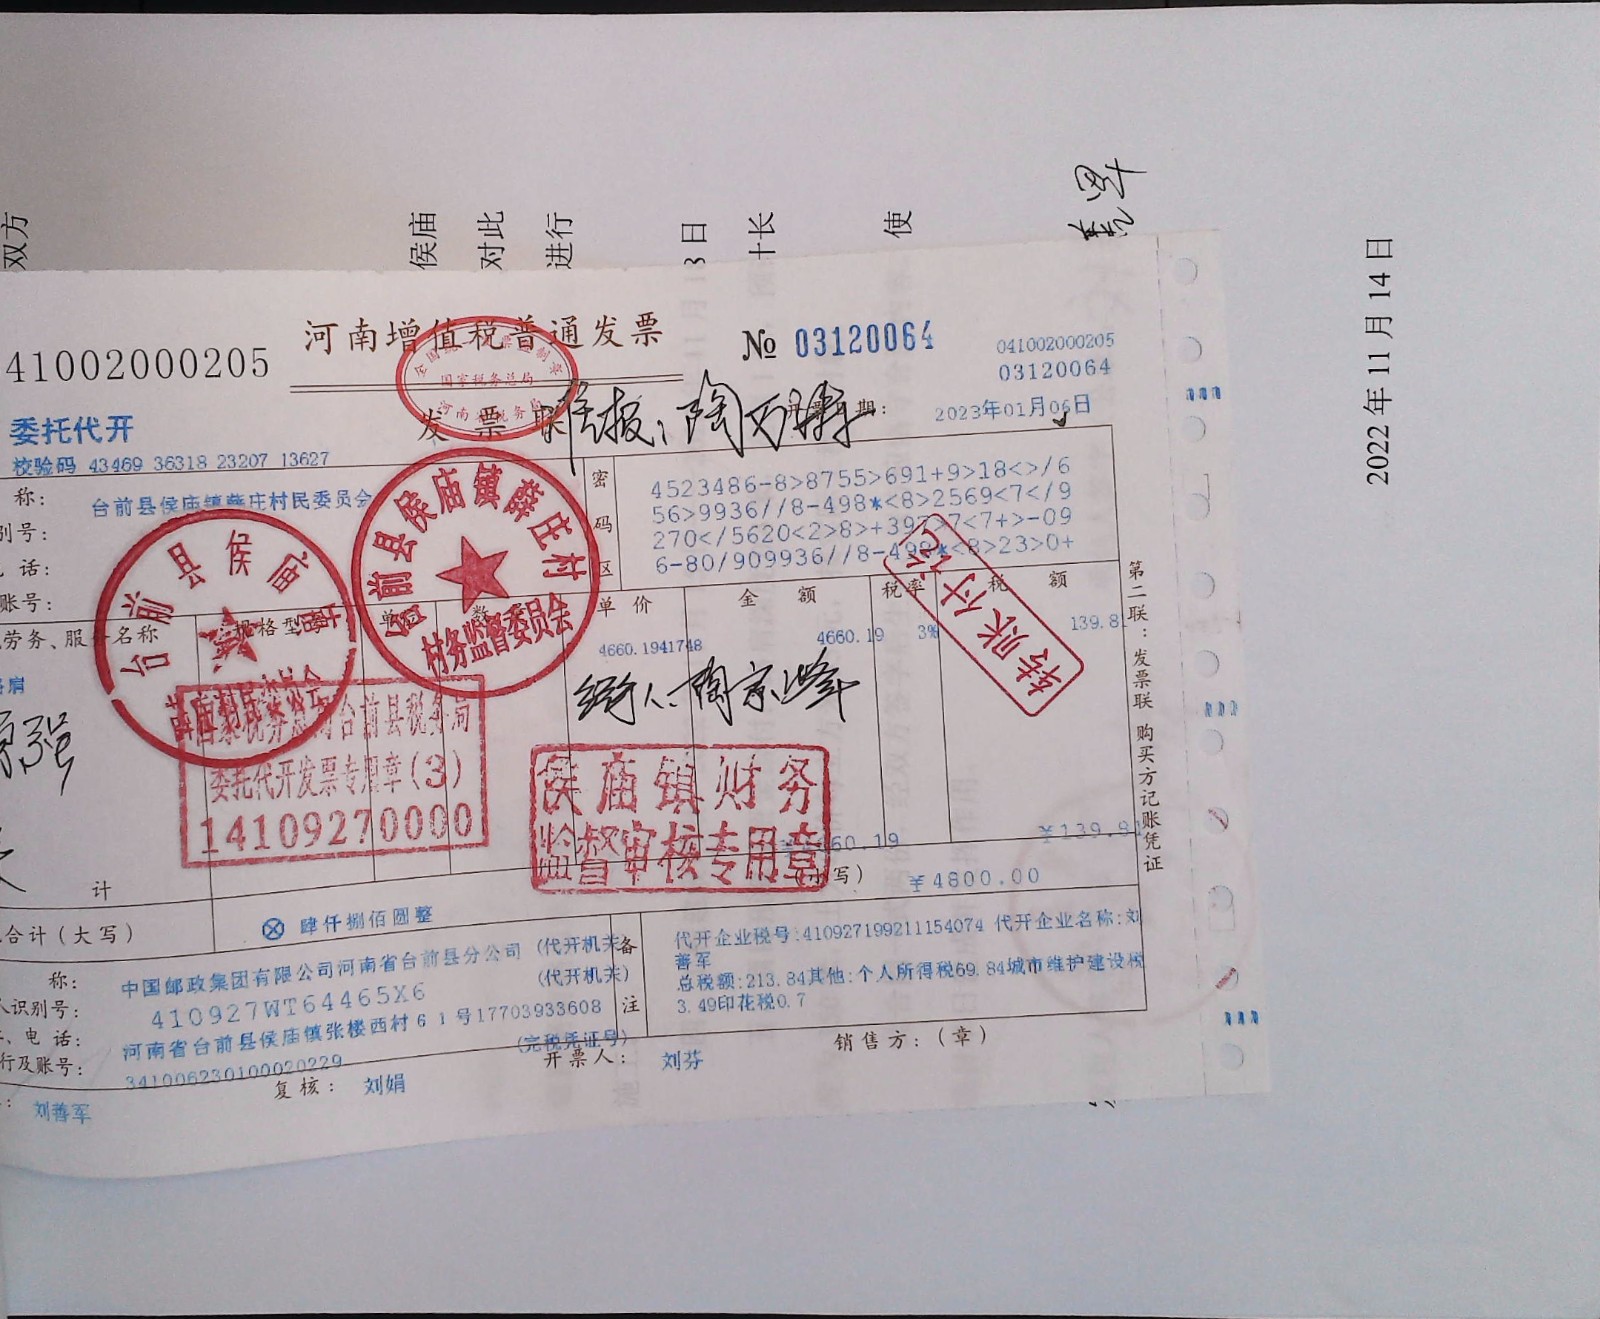 双方
侯庙
对此
进行
日
十长
使
善军
2022 年 11 月 14 日
41002000205
河南增值税普通发票
№ 03120064
041002000205
03120064
委托代开
发票联
2023年01月06日
校验码 43469 36318 23207 13627
称:
台前县侯庙镇薛庄村民委员会
别号:
话:
账号:
密码区
4523486-8>8755>691+9>18<>/6
56>9936//8-498*<8>2569<7</9
270</5620<2>8>+397>7<7+>-09
6-80/909936//8-498*<8>23>0+
劳务、服务名称
规格型号
单价
金额
税率
税额
4660.1941748
4660.19
3%
139.81
准报:陶万择
经手人:陶宗峰
全国统一发票监制章
国家税务总局
河南省税务局
台前县侯庙镇薛庄村
村务监督委员会
台前县侯庙镇
薛庄村村民委员会
国家税务总局台前县税务局
委托代开发票专用章(3)
14109270000
侯庙镇财务
监督审核专用章
转账付讫
计
¥4660.19
¥139.81
合计(大写)
⊗ 肆仟捌佰圆整
(小写)
¥4800.00
称:
中国邮政集团有限公司河南省台前县分公司 (代开机关)
识别号:
410927WT64465X6
(代开机关)
、电 话:
河南省台前县侯庙镇张楼西村61号17703933608
行及账号:
341006230100020229
(完税凭证号)
备注
代开企业税号:410927199211154074 代开企业名称:刘
善军
总税额:213.84其他:个人所得税69.84城市维护建设税
3.49印花税0.7
刘善军
复核:
刘娟
开票人:
刘芬
销售方:(章)
第二联:发票联 购买方记账凭证